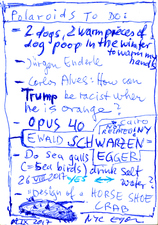 Polaroids To Do:
- 2 dogs, 2 warm pieces of
dog-poop in the winter
to warm my
hands
- Jürgen Enderle
- Carlos Alves: How can
Trump be racist when
he is orange?
- OPUS 40
CAIRO
NY
EWALD SCHWARZEN-
EGGER!
- Do sea gulls
(= sea birds) drink salt
water?
26 VIII 2017 YES
*Design of a HORSE SHOE
CRAB
IX 2017
NYC